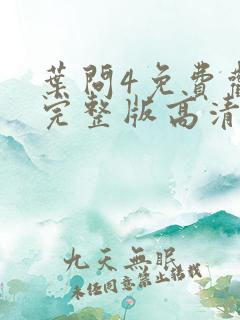 葉問4免費觀
完整版高清
九天無眠
未经同意禁止转载